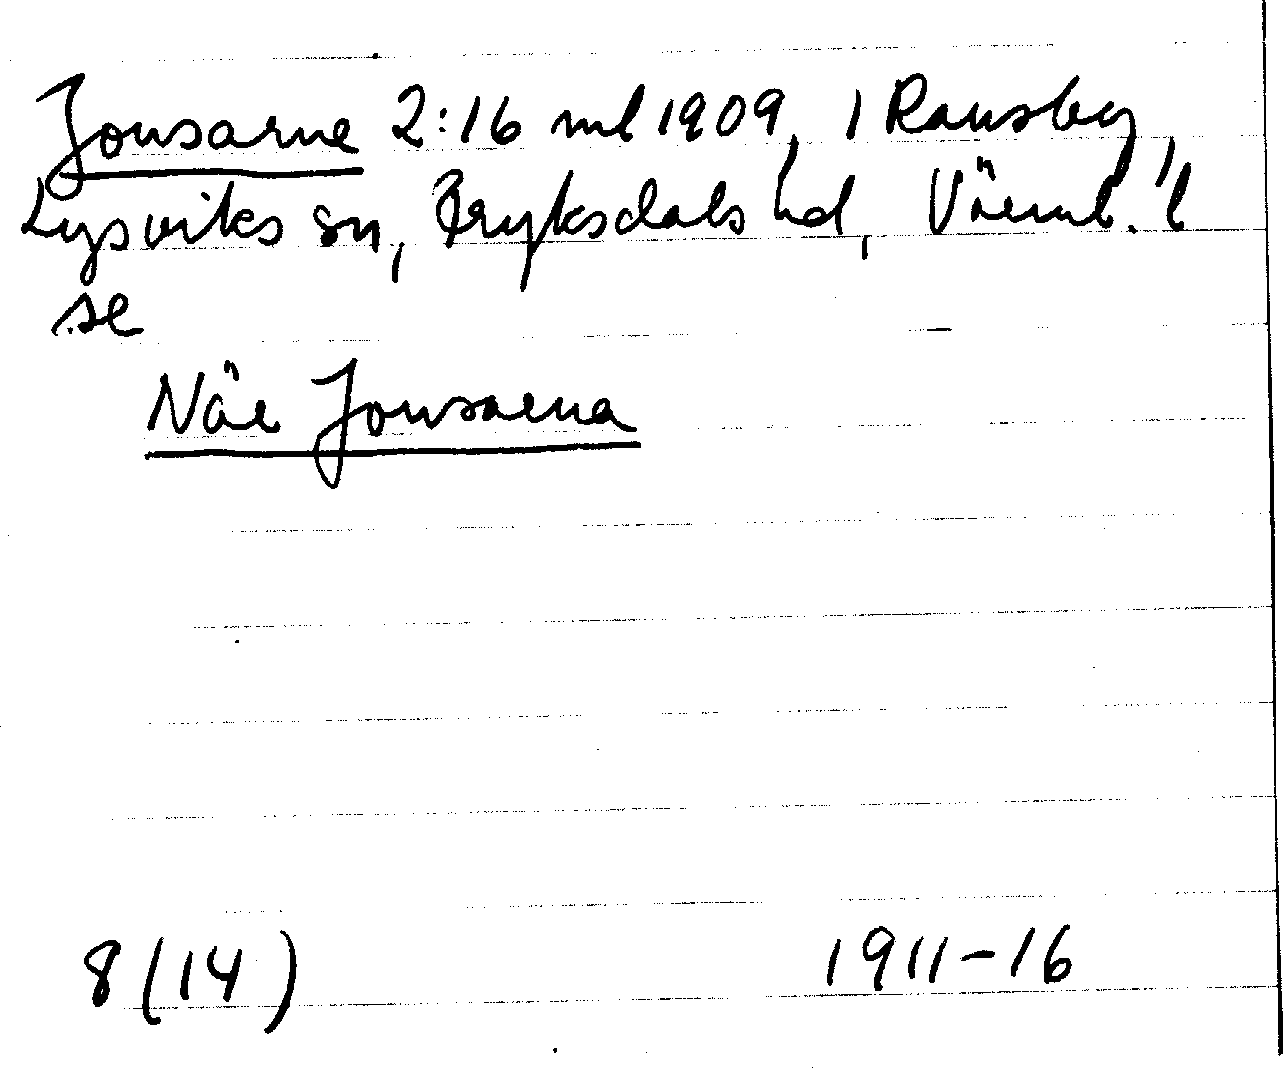 Jonsarne 2:16 ml 1909, 1 Ransby,
Lysviks sn, Fryksdals hd, Värml. l
se
När Jonsarna
8(14) 1911-16